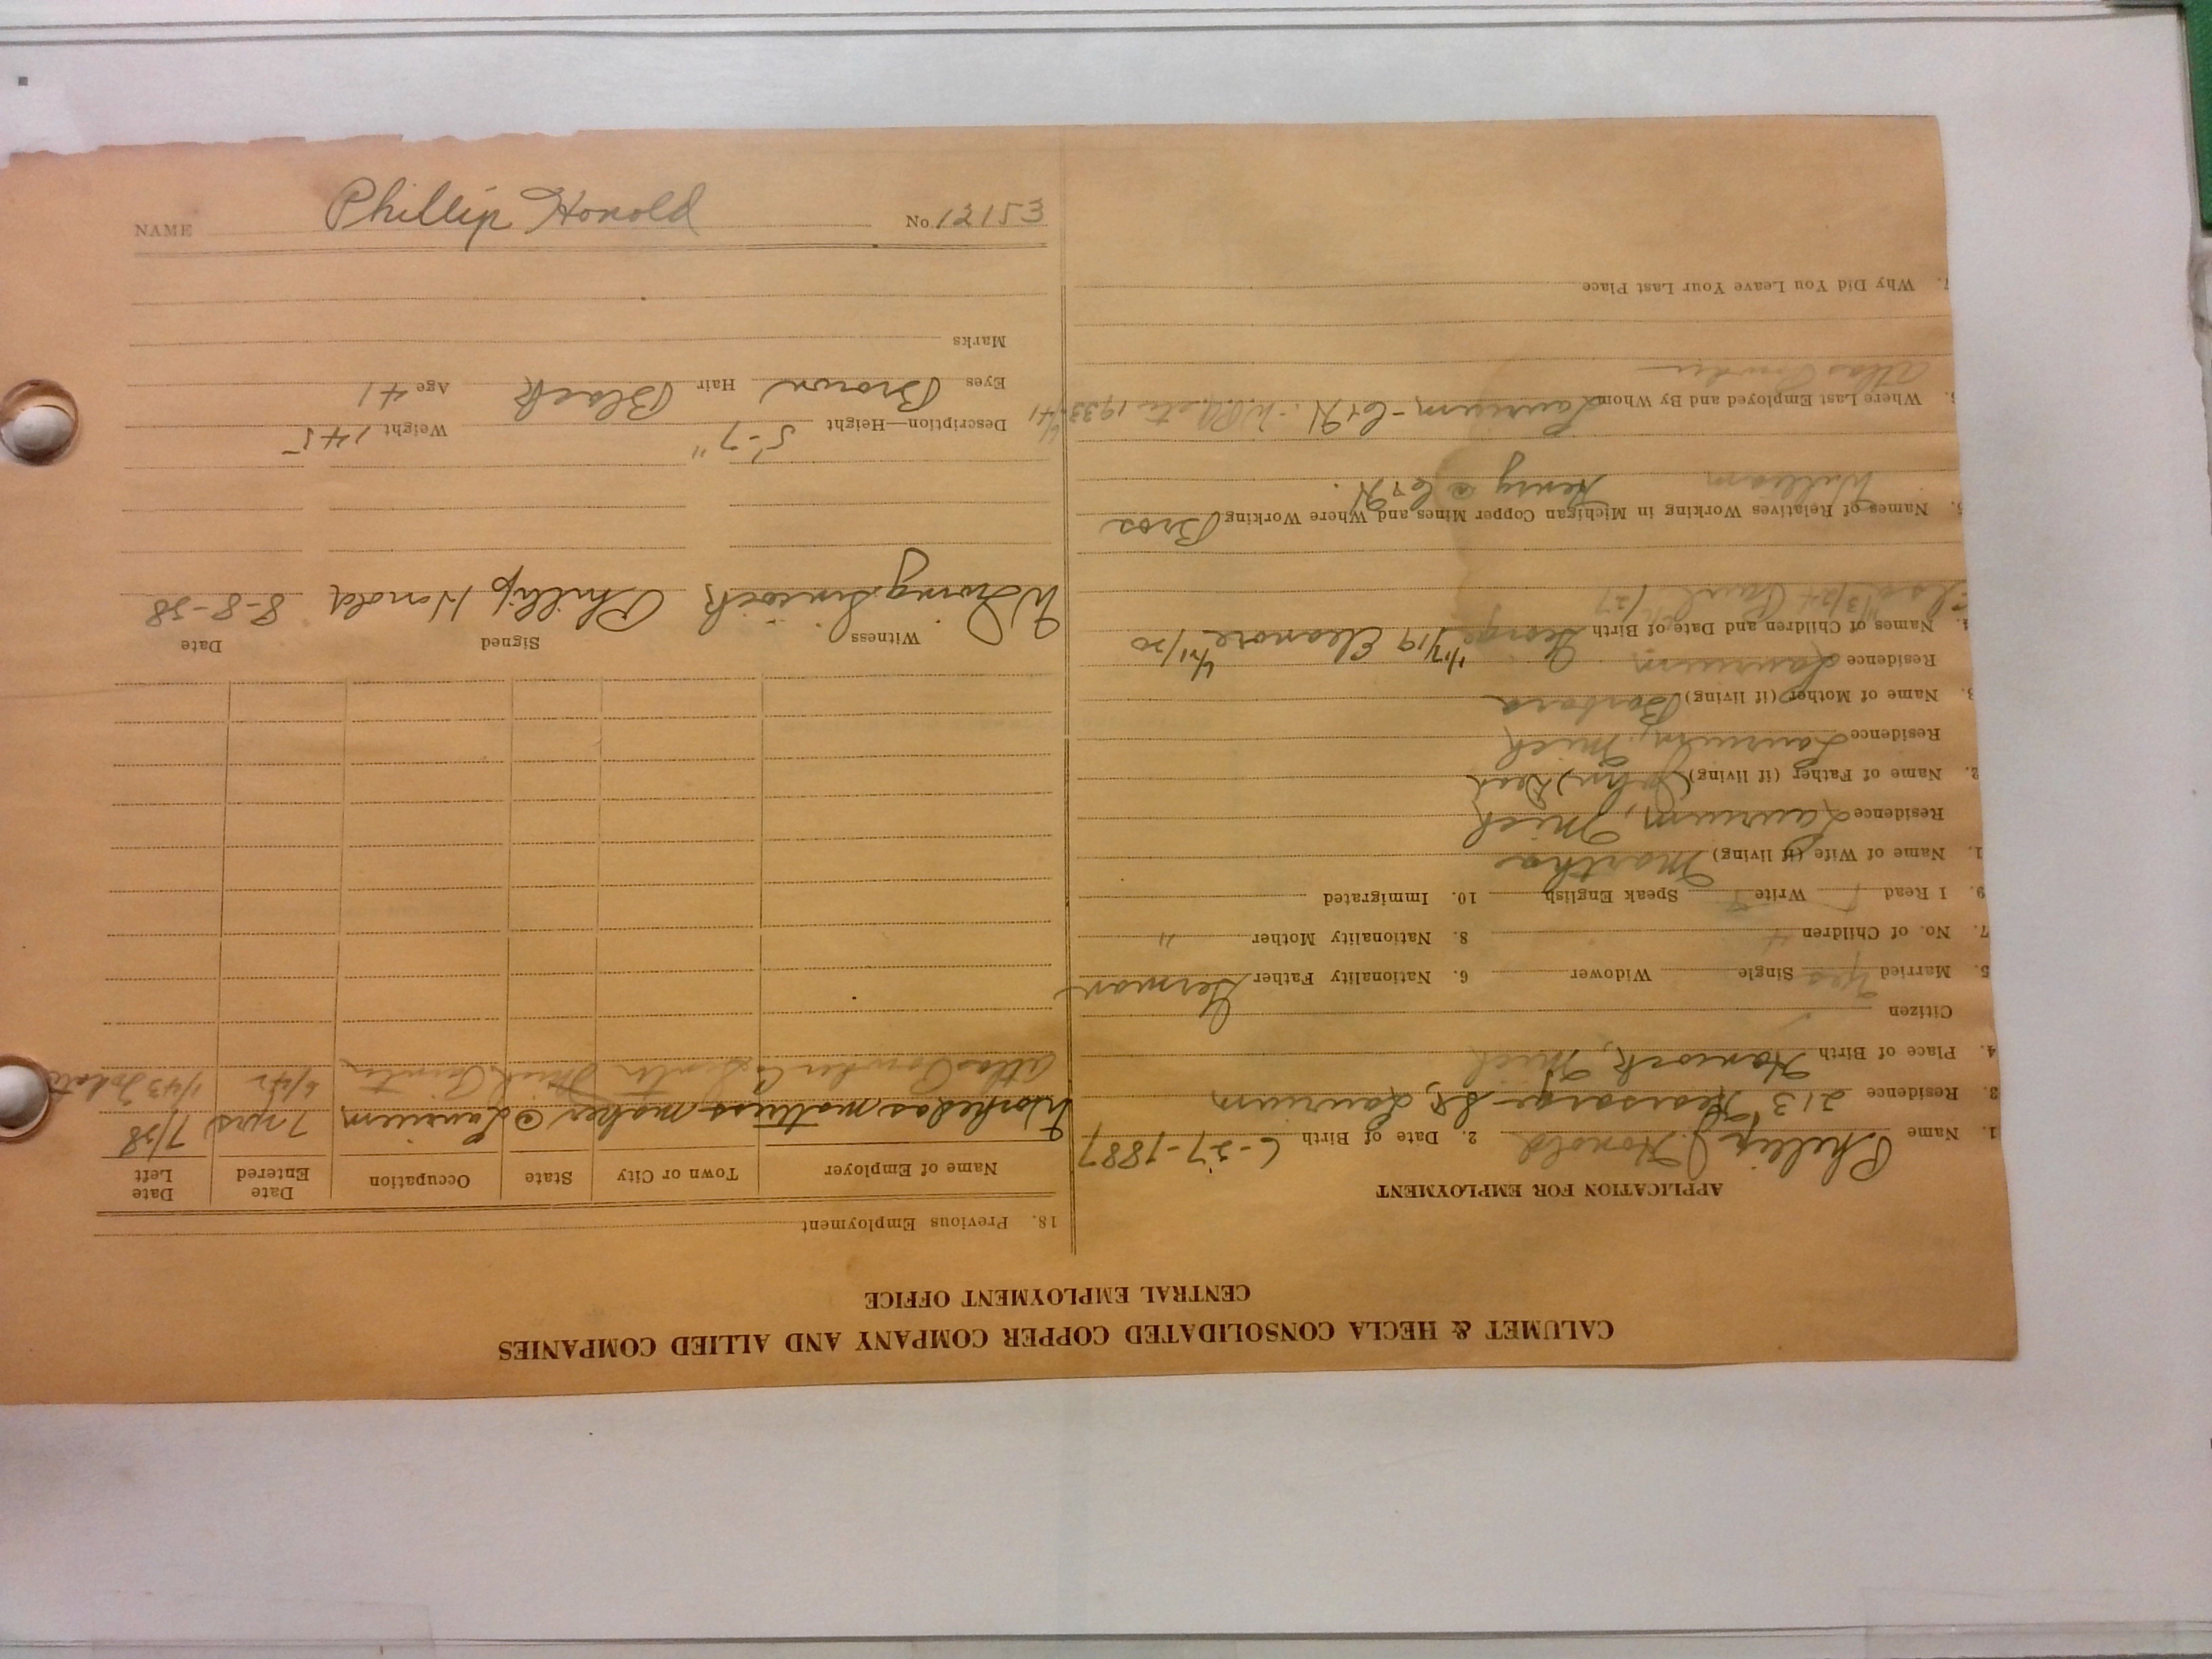 NAME Phillip Honold No. 12153
CALUMET & HECLA CONSOLIDATED COPPER COMPANY AND ALLIED COMPANIES
CENTRAL EMPLOYMENT OFFICE
APPLICATION FOR EMPLOYMENT
1. Name Philip J. Honold 2. Date of Birth 6-27-1887
3. Residence 213 Kearsarge St, Laurium
4. Place of Birth Hancock, Mich
Citizen
5. Married Yes Single Widower 6. Nationality Father German
7. No. of Children 4 8. Nationality Mother "
9. I Read Write Speak English 10. Immigrated
1. Name of Wife (if living) Martha
Residence Laurium, Mich
2. Name of Father (if living) (John) Dead
Residence Laurium, Mich
3. Name of Mother (if living) Barbara
Residence Laurium
4. Names of Children and Date of Birth George 1/17/19 Eleanore 4/21/20
Elsa 11/3/24 Paul /27
5. Names of Relatives Working in Michigan Copper Mines and Where Working Bros
William Henry @ C&H.
6. Where Last Employed and By Whom Laurium - C&H - W.P.A. etc 1933-41
Atlas Powder
7. Why Did You Leave Your Last Place
18. Previous Employment
Name of Employer Town or City State Occupation Date Entered Date Left
Worked as mattress maker @ Laurium 7 yrs 7/38
Atlas Powder Co Senter Mich Painter 6/42 1/43 to date
Witness Signed Date
W. Irving Simcock Phillip Honold 8-8-38
Description—Height 5'-7" Weight 145
Eyes Brown Hair Black Age 41
Marks